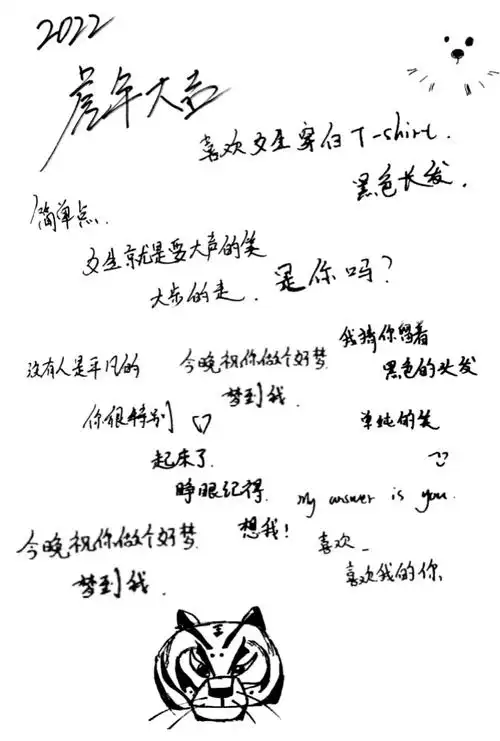 2022
虎年大吉
喜欢女生穿白T-shirt.
黑色长发.
简单点.
女生就是要大声的笑
大步的走.
是你吗?
我猜你留着
黑色的头发
单纯的笑
没有人是平凡的
你很特别
今晚祝你做个好梦
梦到我.
起床了.
睁眼记得.
想我!
my answer is you.
喜欢_
喜欢我的你
今晚祝你做个好梦.
梦到我.